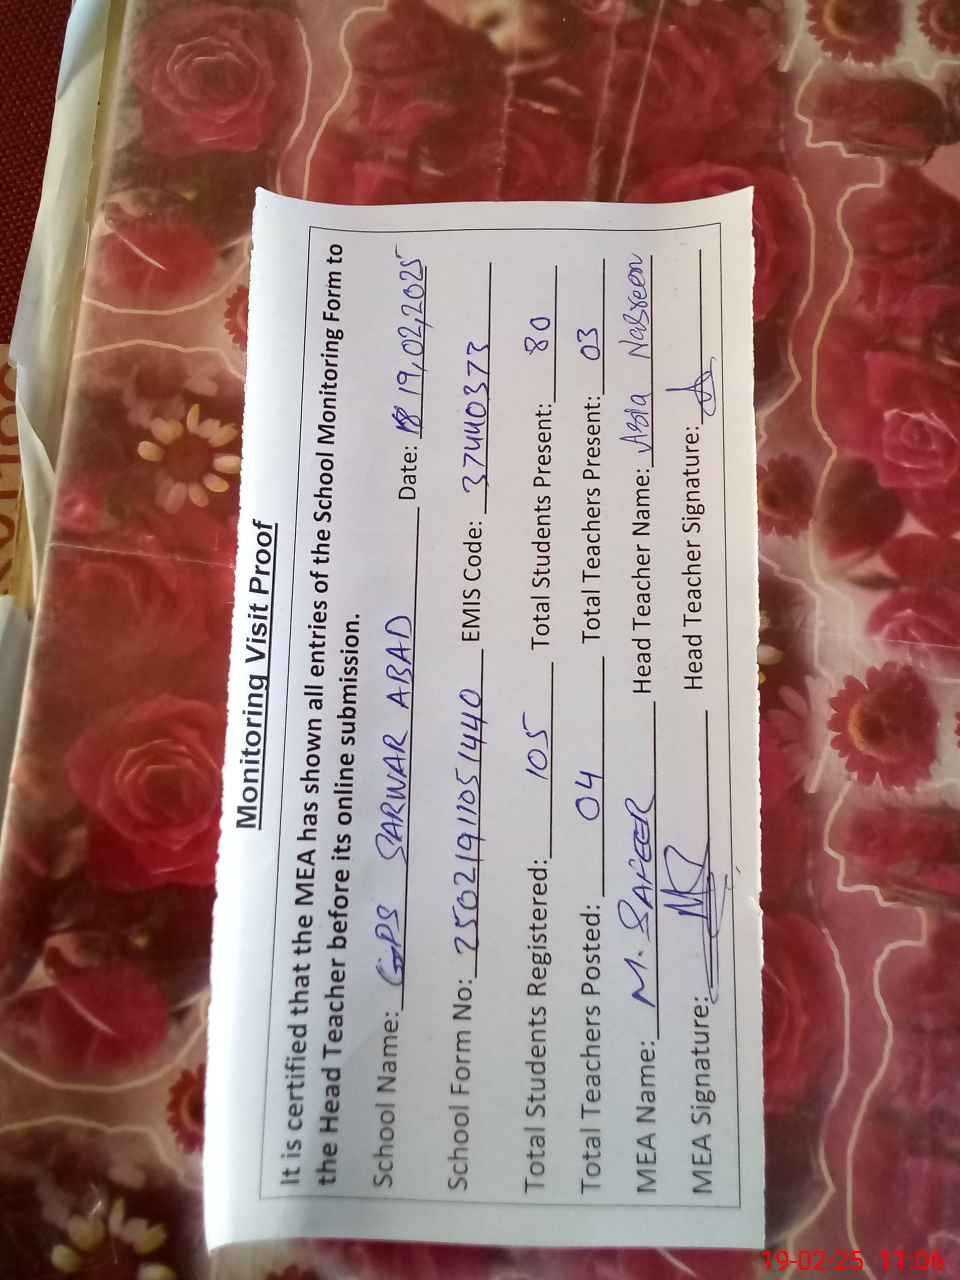 Monitoring Visit Proof
It is certified that the MEA has shown all entries of the School Monitoring Form to
the Head Teacher before its online submission.
School Name: GPS SARWAR ABAD Date: 19,02,2025
School Form No: 25021911051440 EMIS Code: 37440373
Total Students Registered: 105 Total Students Present: 80
Total Teachers Posted: 04 Total Teachers Present: 03
MEA Name: M. SAFEER Head Teacher Name: Asia Nasreen
MEA Signature: Head Teacher Signature:
19-02-25 11:06